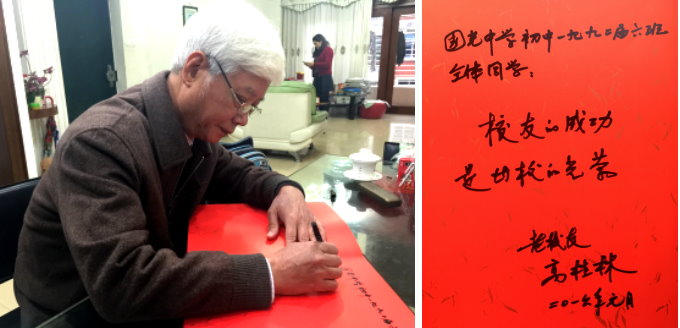 国光中学初中一九九二届六班
全体同学：
校友的成功
是母校的光荣
老校友
高桂林
二〇一六年元月